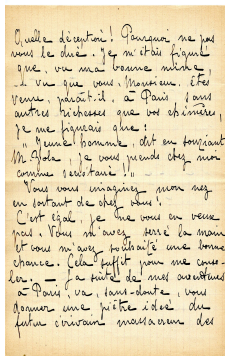 Quelle déception! Pourquoi ne pas
vous le dire. Je m'étais figuré
que, vu ma bonne mine
— vu que vous, Monsieur, êtes
venu, paraît-il, à Paris sans
autres richesses que vos chimères,
je me figurais que:
"Jeune homme, dit en souriant
M. Zola, je vous prends chez moi
comme secrétaire!"
Vous vous imaginez mon nez
en sortant de chez vous!
C'est égal, je ne vous en veux
pas. Vous m'avez serré la main
et vous m'avez souhaité une bonne
chance. Cela suffit pour me conso-
ler. — La suite de mes aventures
à Paris, va, sans-doute, vous
donner une piètre idée du
futur écrivain massacreur des